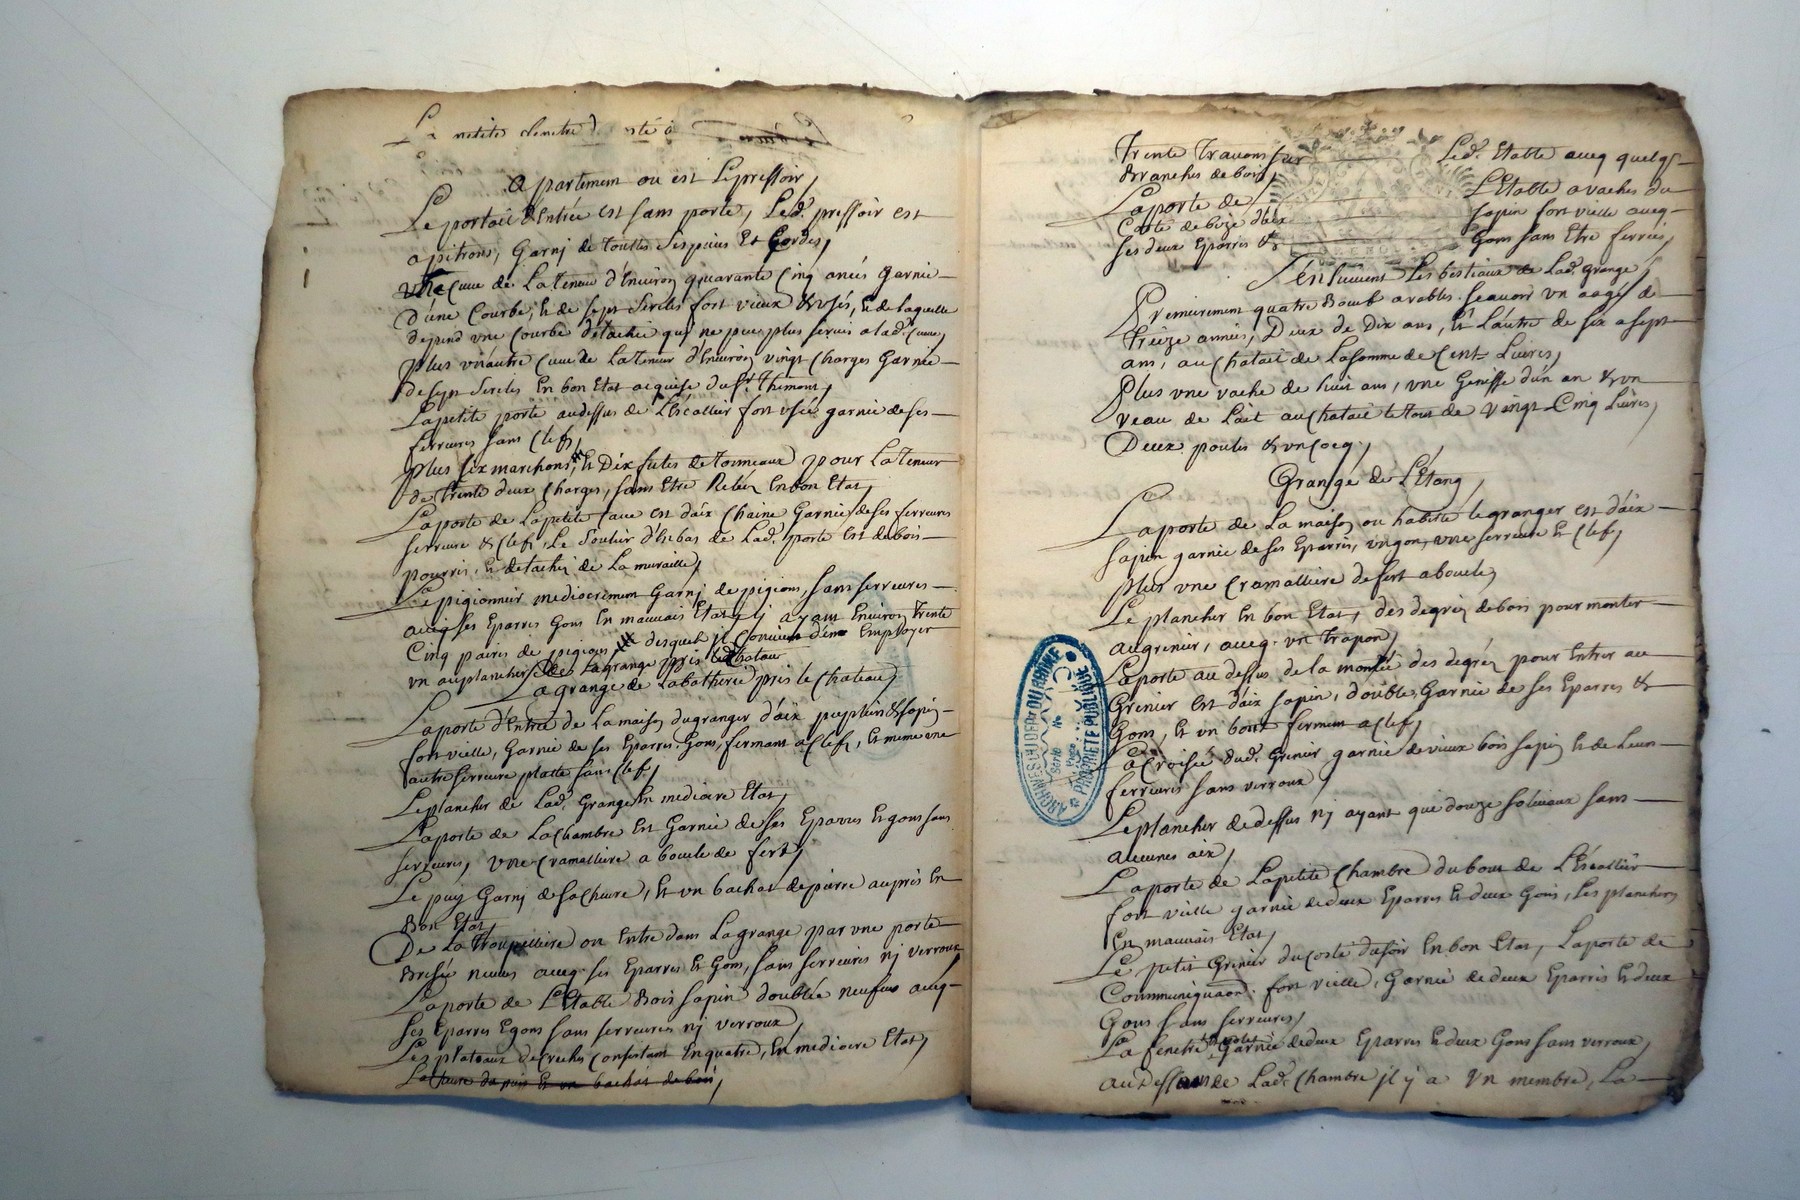 La petite fenetre
Apartement ou est Lepressoir,
Le portail d'Entrée est sans porte, Led. pressoir est
apitrons, Garnj de touttes ses pieces Et Cordes,
Vne Cuue de La teneur d'Enuiron quarante Cinq anées garnie
D'une Courbe, & de sept Sercles fort vieux & vsés, & de Laquelle
depend vne Courbe détachée quj ne peut plus seruir a lad. Cuue,
Plus vn'autre Cuue de La teneur d'Enuiron vingt Charges Garnie
de sept Sercles En bon Etat acquise du Sr. Thimont,
La petite porte audessus de L'Escallier fort vsée garnie de ses
ferrures sans Clef,
Plus six marchons, & Dix futes de tonneaux pour La teneur
de Trente deux Charges, sans Etre Reliéz En bon Etat,
La porte de La petite Caue est d'aix Chaine Garnie de ses ferrures
serrure & Clef, Le Soulier d'Enbas de Lad. porte Est de bois
pourris, & detachéz de La muraille,
Le pigionnier mediocrement Garnj de pigions, sans serrures
aueq ses Eparres Gons En mauuais Etat, y ayant Enuiron Trente
Cinq paires de pigions desquels jl Conuient d'en Employer
vn au plancher de La grange près Le Chateau
La grange de Labatherie près le Chateau,
La porte d'Entrée de La maison du granger d'aix peuplier & sapin
fort vieille, Garnie de ses Eparres, Gons, fermant a Clef, & meme vne
autre serrure platte sans Clef,
Le plancher de Lad. Grange En mediocre Etat,
La porte de La Chambre Est Garnie de ses Eparres & gons sans
serrures, Vne Cramalliere a boucle de fert,
Le puy Garnj de sa Chaine, & vn bachat de pierre auprès En
Bon Etat,
De La Trouppelliere on Entre dans La grange par vne porte
Brisée neuue aueq ses Eparres & Gons, sans serrures nj verroux
La porte de L'Etable Bois sapin doublée neufue aueq
Ses Eparres Egons sans serrures nj verroux,
Les plateaux de creches Consistant En quatre, En mediocre Etat,
La Chaine du puis & vn bachat de bois,
Trente Trauons sur Led. Etable aueq quelqs
Branches de bois,
La porte de L'Etable a vaches du
Costé de bize d'aix sapin fort vielle aueq
Ses deux Eparres & Gons sans Etre ferrées,
S'ensuiuent Les bestiaux de Lad. Grange,
Premierement quatre Boeufs arables scauoir vn aagé de
Treize années, Deux de Dix ans, & L'autre de six a sept
ans, au Chatail de La somme de Cent Liures,
Plus vne vache de huit ans, vne Genisse d'un an & vn
veau de Lait au Chatail le tout de Vingt Cinq Liures,
Deux poules & vn Cocq,
Grange de L'Etang,
La porte de La maison ou habite le granger est d'aix
sapin garnie de ses Eparres, vn gon, vne serrure & Clef,
Plus vne Cramalliere de fert a boucle,
Le plancher En bon Etat, des degréz de bois pour monter
au grenier, aueq vn Trapon,
La porte au dessus de la montée des degréz pour Entrer au
Grenier est d'aix sapin, double, Garnie de ses Eparres &
Gons, & vn bout fermant a Clef,
La Croisée dud. Grenier garnie de vieux bois sapin & de Leurs
ferrures sans verroux,
Le plancher de dessus nj ayant que douze soliuaux sans
aucunes aix,
La porte de La petite Chambre du bout de L'Escallier
fort vielle garnie de deux Eparres & deux Gons, Les planchers
En mauuais Etat,
Le petit Grenier du costé du soir En bon Etat, La porte de
Communiquaon. fort vielle, Garnie de deux Eparres & deux
Gons sans serrures,
La fenetre Garnie de deux Eparres & deux Gons sans verroux,
au dessus de Lad. Chambre jl y a Vn membre, La
ARCHIVES DU DEPT DU RHÔNE
Serie No
Page
PROPRIETE PUBLIQUE